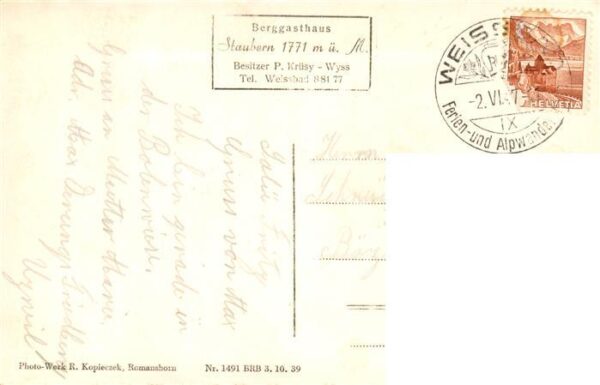 Berggasthaus
Staubern 1771 m ü. M.
Besitzer P. Krüsy - Wyss
Tel. Weissbad 8 81 77
WEISS
-2. VI.
IX
Ferien- und Alpwande
HELVETIA
Salü Fritz
Gruss von Max
Ich bin gerade in
der
Gruss an Mutter Marie.
Adr. Max
Herrn
Photo-Werk R. Kopieczek, Romanshorn
Nr. 1491 BRB 3. 10. 39